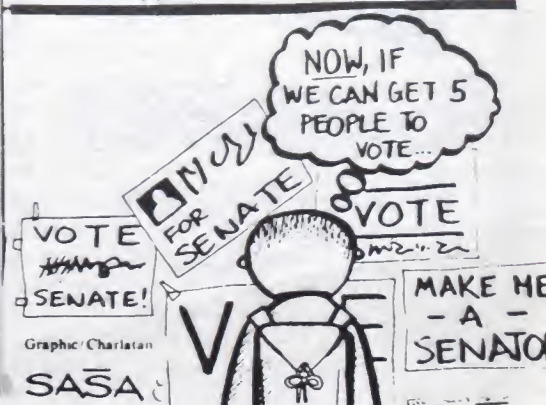 NOW, IF
WE CAN GET 5
PEOPLE TO
VOTE...
FOR
SENATE
VOTE
VOTE
SENATE!
MAKE ME
- A -
SENATO
V
Graphic/Charlatan
SASA